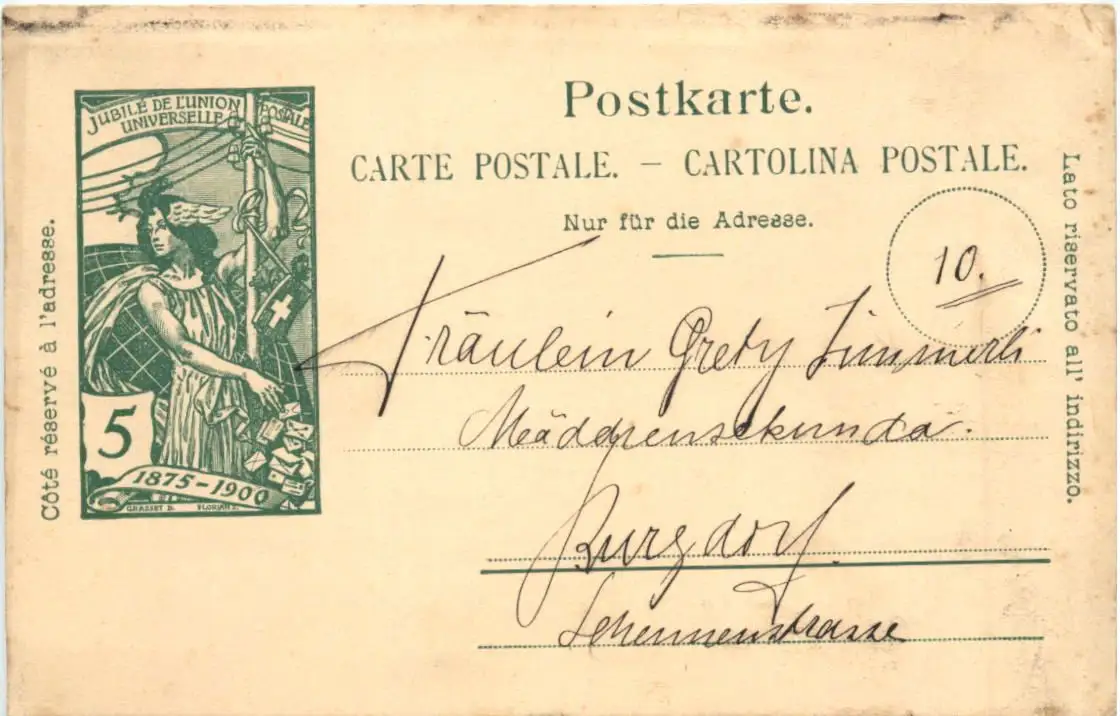 JUBILÉ DE L'UNION POSTALE
UNIVERSELLE
5
1875-1900
GRASSET D. FLORIAN S.
Côté réservé à l'adresse.
Postkarte.
CARTE POSTALE. — CARTOLINA POSTALE.
Nur für die Adresse.
10.
Fräulein Grety Zimmerli
Mädchensekunda.
Burgdorf.
Scheunenstrasse
Lato riservato all' indirizzo.